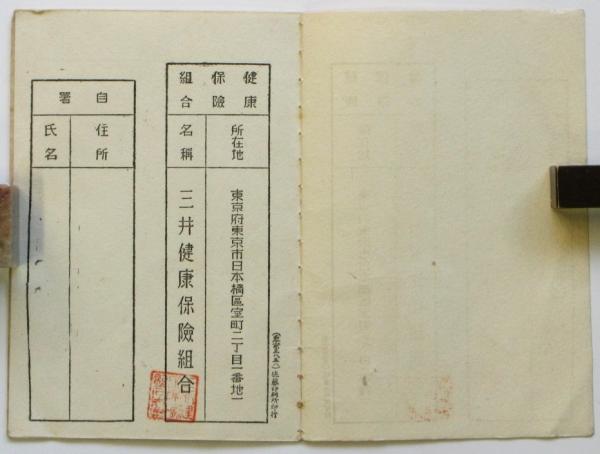 健康保險組合
所在地
東京府東京市日本橋區室町二丁目一番地一
名稱
三井健康保險組合
自署
住所
氏名